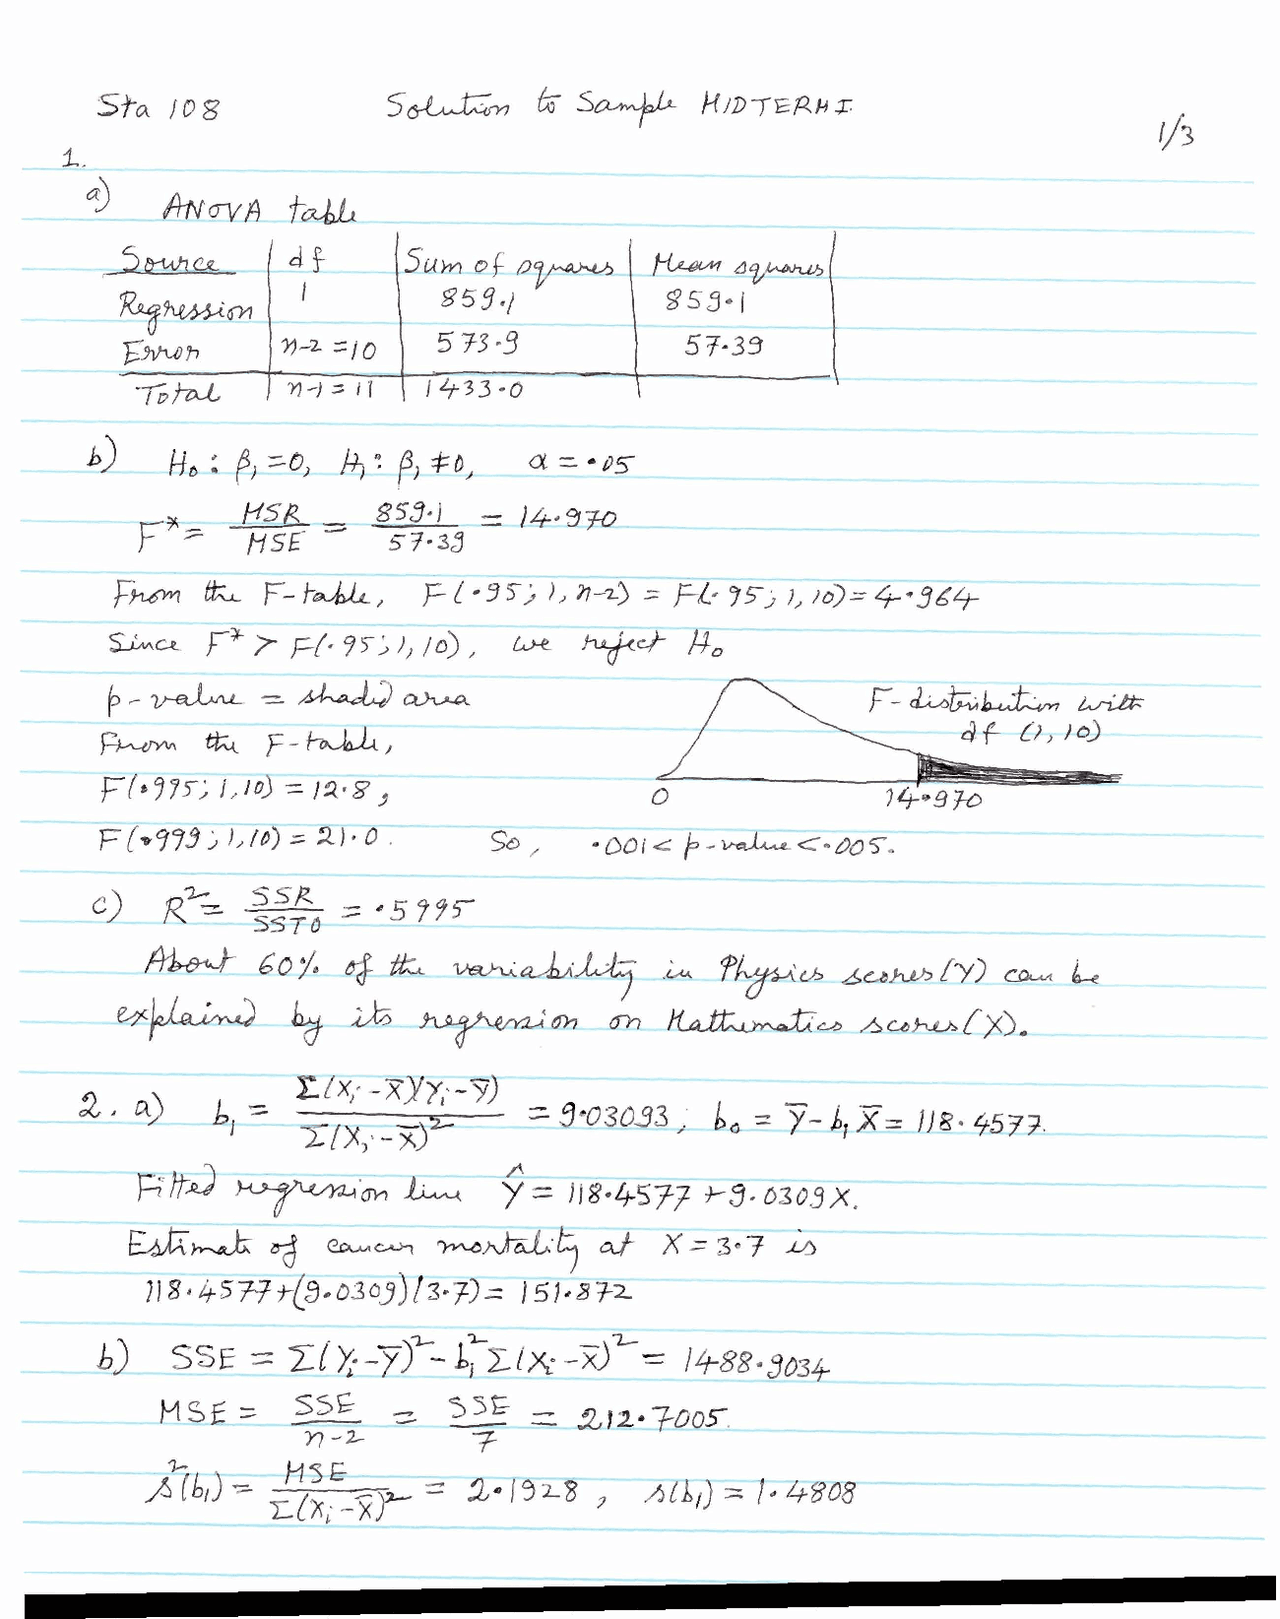 Sta 108 Solution to Sample MIDTERM I
1/3
1.
a) ANOVA table
Source df Sum of squares Mean squares
Regression 1 859.1 859.1
Error n-2 = 10 573.9 57.39
Total n-1 = 11 1433.0
b) H₀: β₁ = 0, H₁: β₁ ≠ 0, α = .05
F* = MSR/MSE = 859.1/57.39 = 14.970
From the F-table, F(.95; 1, n-2) = F(.95; 1, 10) = 4.964
Since F* > F(.95; 1, 10), we reject H₀
p-value = shaded area
From the F-table,
F(.995; 1, 10) = 12.8,
F(.999; 1, 10) = 21.0. So, .001 < p-value < .005.
F-distribution with
df (1, 10)
0 14.970
c) R² = SSR/SSTO = .5995
About 60% of the variability in Physics scores (Y) can be
explained by its regression on Mathematics scores (X).
2. a) b₁ = Σ(Xᵢ - X̄)(Yᵢ - Ȳ)/Σ(Xᵢ - X̄)² = 9.03093, b₀ = Ȳ - b₁X̄ = 118.4577.
Fitted regression line Ŷ = 118.4577 + 9.0309X.
Estimate of cancer mortality at X = 3.7 is
118.4577 + (9.0309)(3.7) = 151.872
b) SSE = Σ(Yᵢ - Ȳ)² - b₁² Σ(Xᵢ - X̄)² = 1488.9034
MSE = SSE/n-2 = SSE/7 = 212.7005.
s²(b₁) = MSE/Σ(Xᵢ - X̄)² = 2.1928, s(b₁) = 1.4808